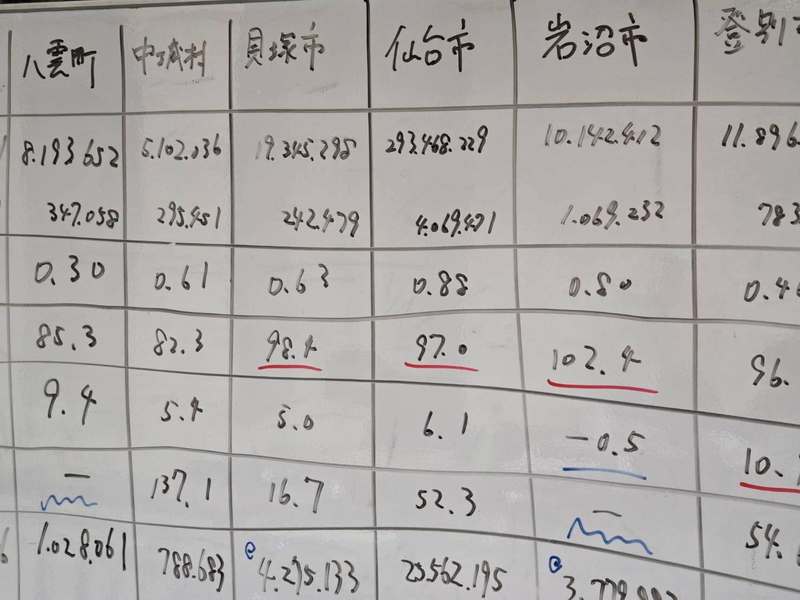 八雲町 中城村 貝塚市 仙台市 岩沼市 登別
8.193.652 5.102.036 19.345.298 293.468.229 10.142.412 11.896
347.058 295.451 242.479 4.069.471 1.069.232 783
0.30 0.61 0.63 0.88 0.80 0.4
85.3 82.3 98.4 97.0 102.4 96.
9.4 5.4 5.0 6.1 -0.5 10.
- 137.1 16.7 52.3 - 54.
1.028.061 788.683 4.295.133 25.562.195